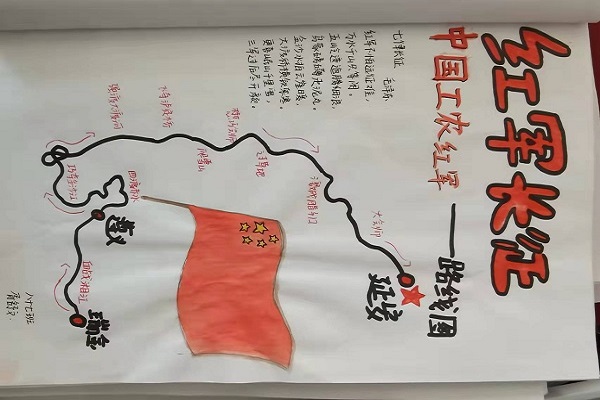 红军长征
中国工农红军
一路线图
七律长征 毛泽东
红军不怕远征难,
万水千山只等闲。
五岭逶迤腾细浪,
乌蒙磅礴走泥丸。
金沙水拍云崖暖,
大渡桥横铁索寒。
更喜岷山千里雪,
三军过后尽开颜。
强渡大渡河
飞夺泸定桥
爬雪山
过草地
大会师
延安
巧渡金沙江
四渡赤水
遵义
血战湘江
瑞金
八十七班